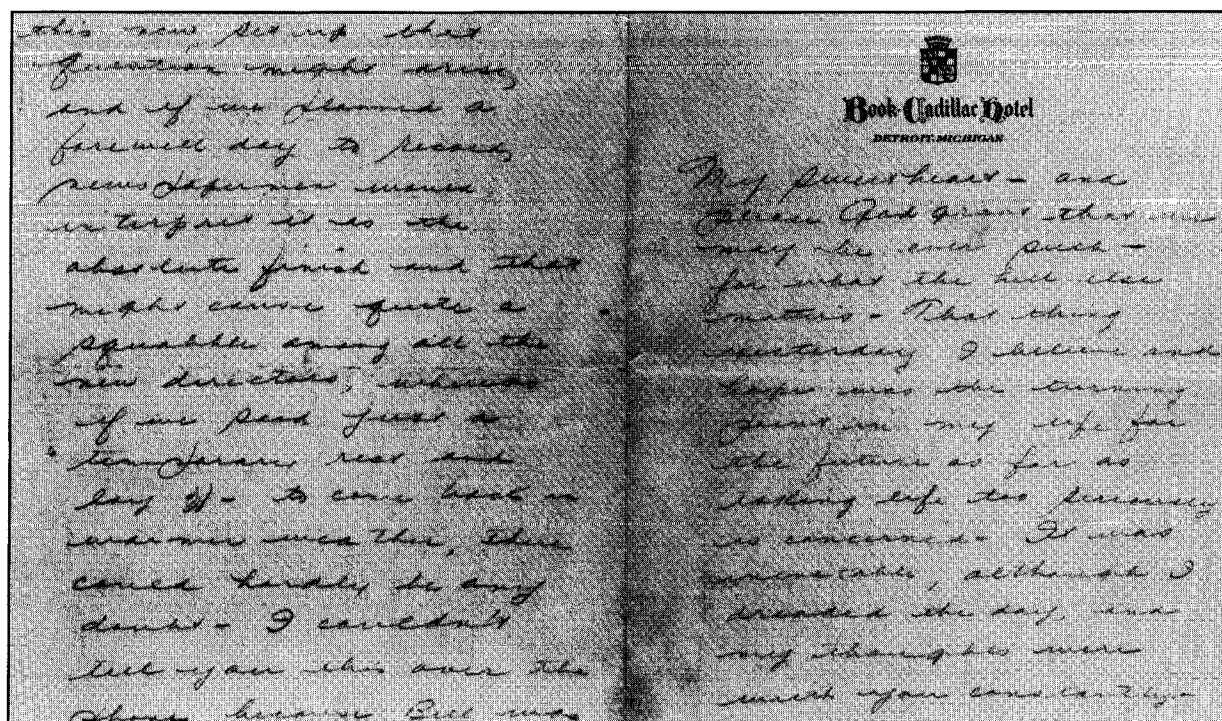 this new set up that
question might arise,
and if we planned a
farewell day to record,
newspapermen would
interpret it as the
absolute finish and that
might cause quite a
squabble among all the
new directors, whereas
if we said just a
temporary rest and
lay off - to come back in
warmer weather, there
could hardly be any
doubt - I couldn't
tell you this over the
phone because Bill was
Book-Cadillac Hotel
DETROIT, MICHIGAN
My Sweetheart - and
please God grant that we
may be ever such -
for what the hell else
matters - That thing
yesterday I believe and
hope was the turning
point in my life for
the future as far as
taking life too seriously
is concerned - It was
inevitable, although I
dreaded the day, and
my thoughts were
with you constantly -